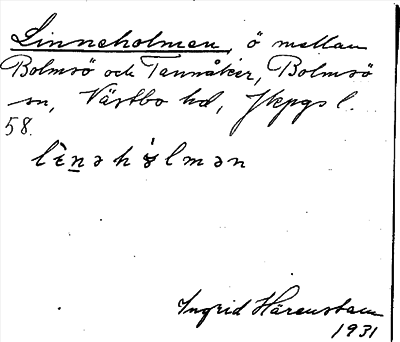 Linneholmen, ö mellan
Bolmsö och Tannåker, Bolmsö
sn, Västbo hd, Jkpgs l.
58.
Ingrid Härenstam
1931